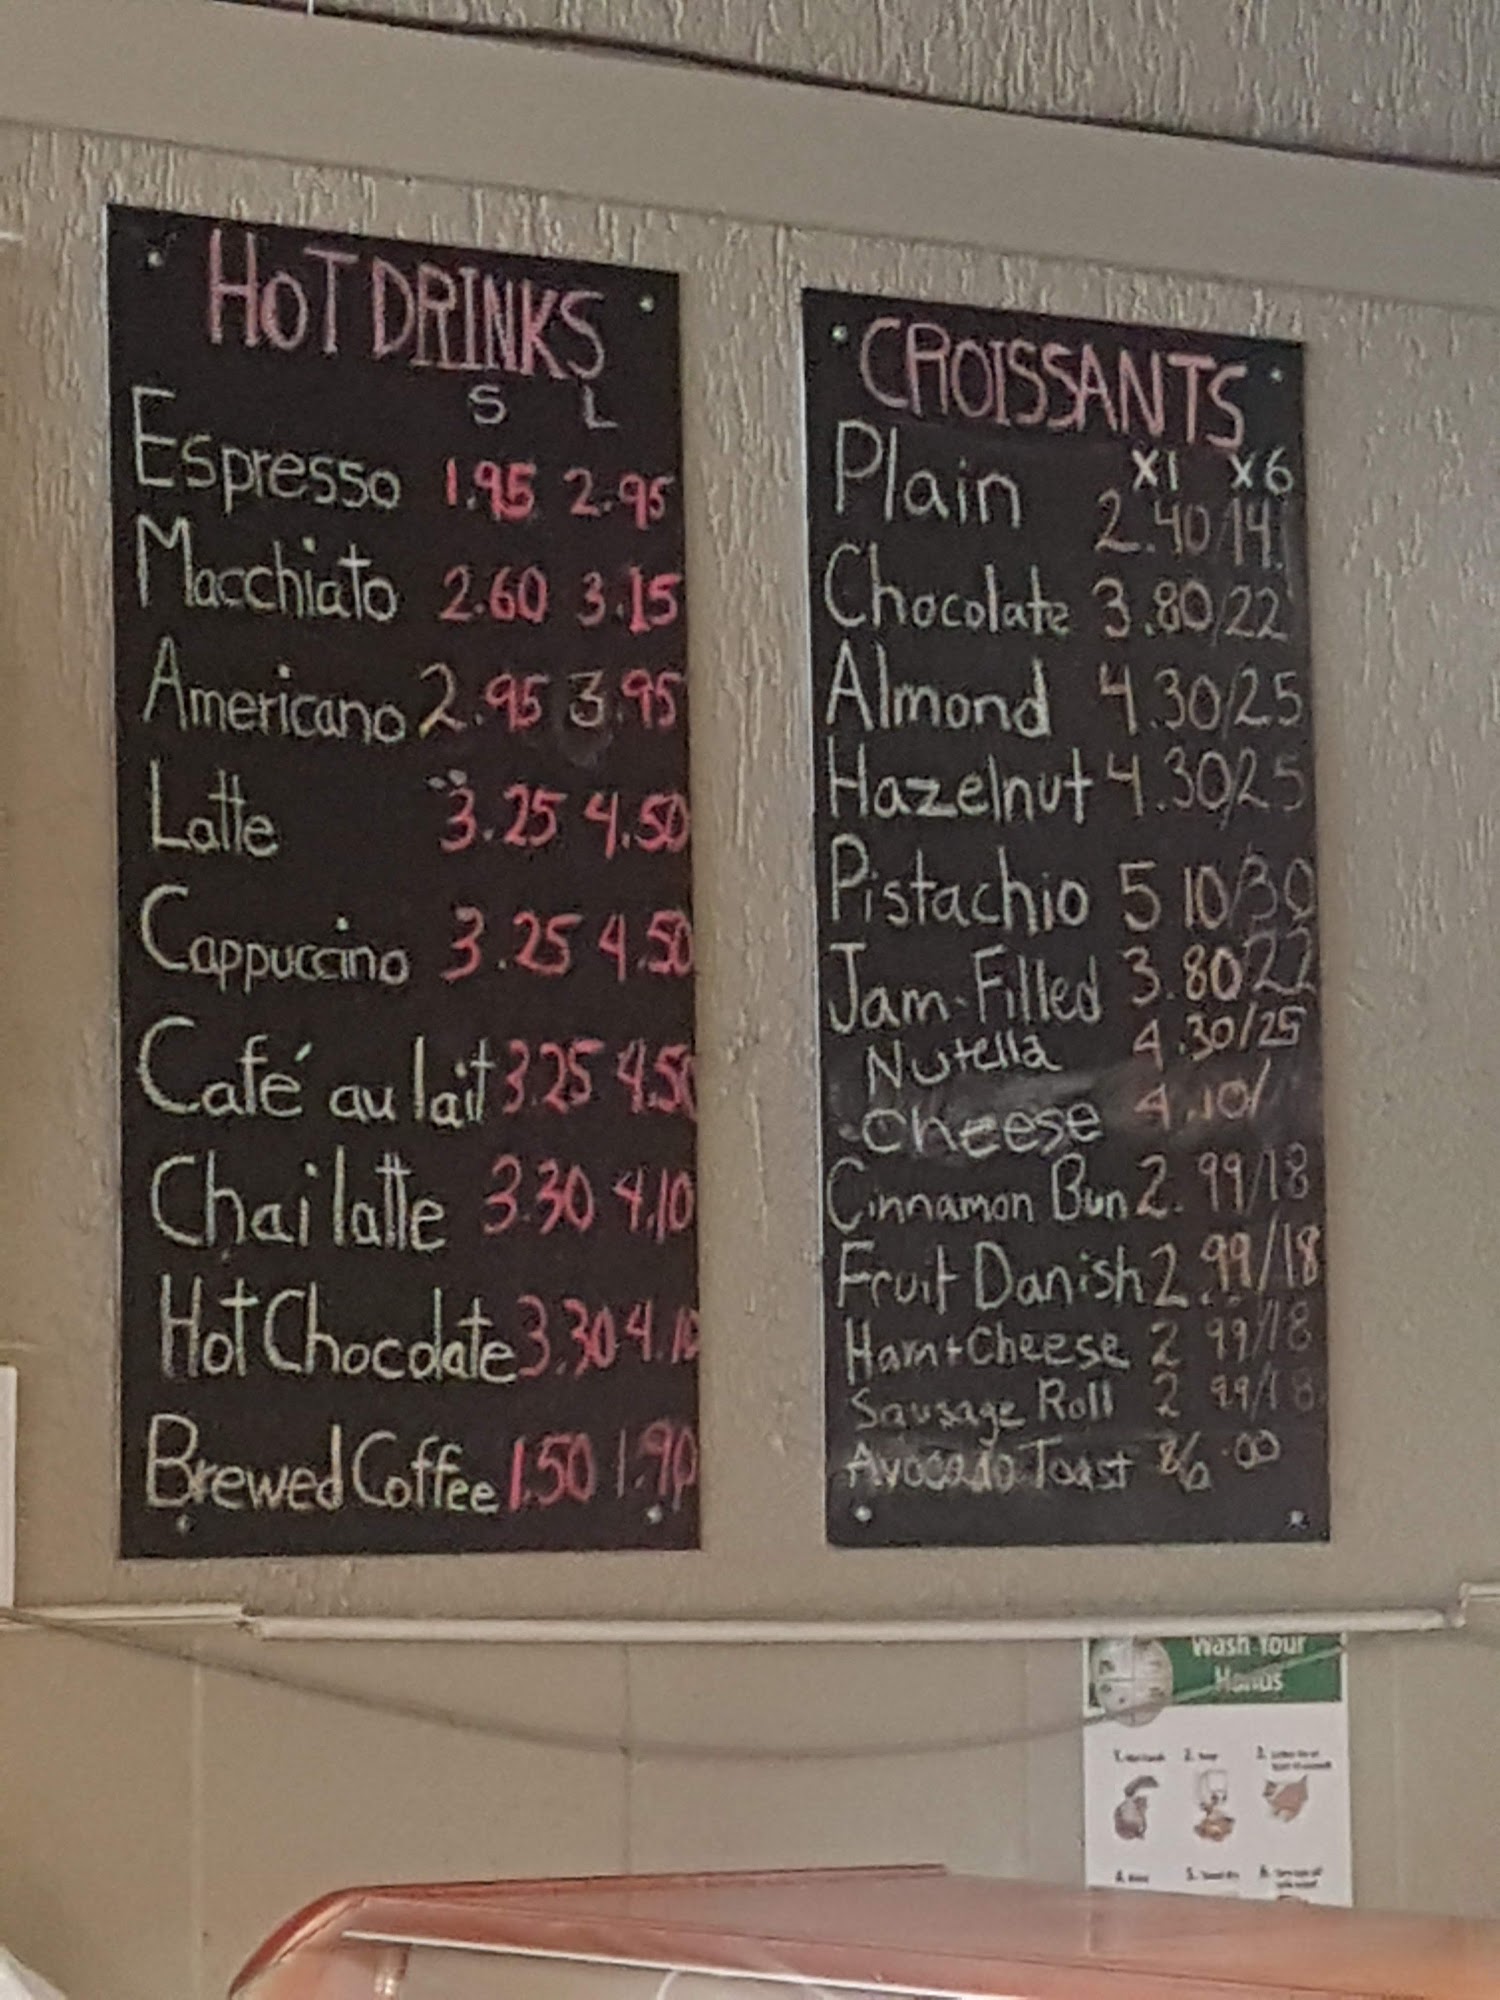 HOT DRINKS
S L
Espresso 1.95 2.95
Macchiato 2.60 3.15
Americano 2.95 3.95
Latte 3.25 4.50
Cappuccino 3.25 4.50
Café au lait 3.25 4.50
Chai latte 3.30 4.10
Hot Chocolate 3.30 4.10
Brewed Coffee 1.50 1.90
CROISSANTS
X1 X6
Plain 2.40/14
Chocolate 3.80/22
Almond 4.30/25
Hazelnut 4.30/25
Pistachio 5 10/30
Jam-Filled 3.80/22
Nutella 4.30/25
Cheese 4.10/
Cinnamon Bun 2.99/18
Fruit Danish 2.99/18
Ham+Cheese 2 99/18
Sausage Roll 2 99/18
Avocado Toast .00
Wash Your
Hands
1.
2. Soap
3.
4.
5.
6.